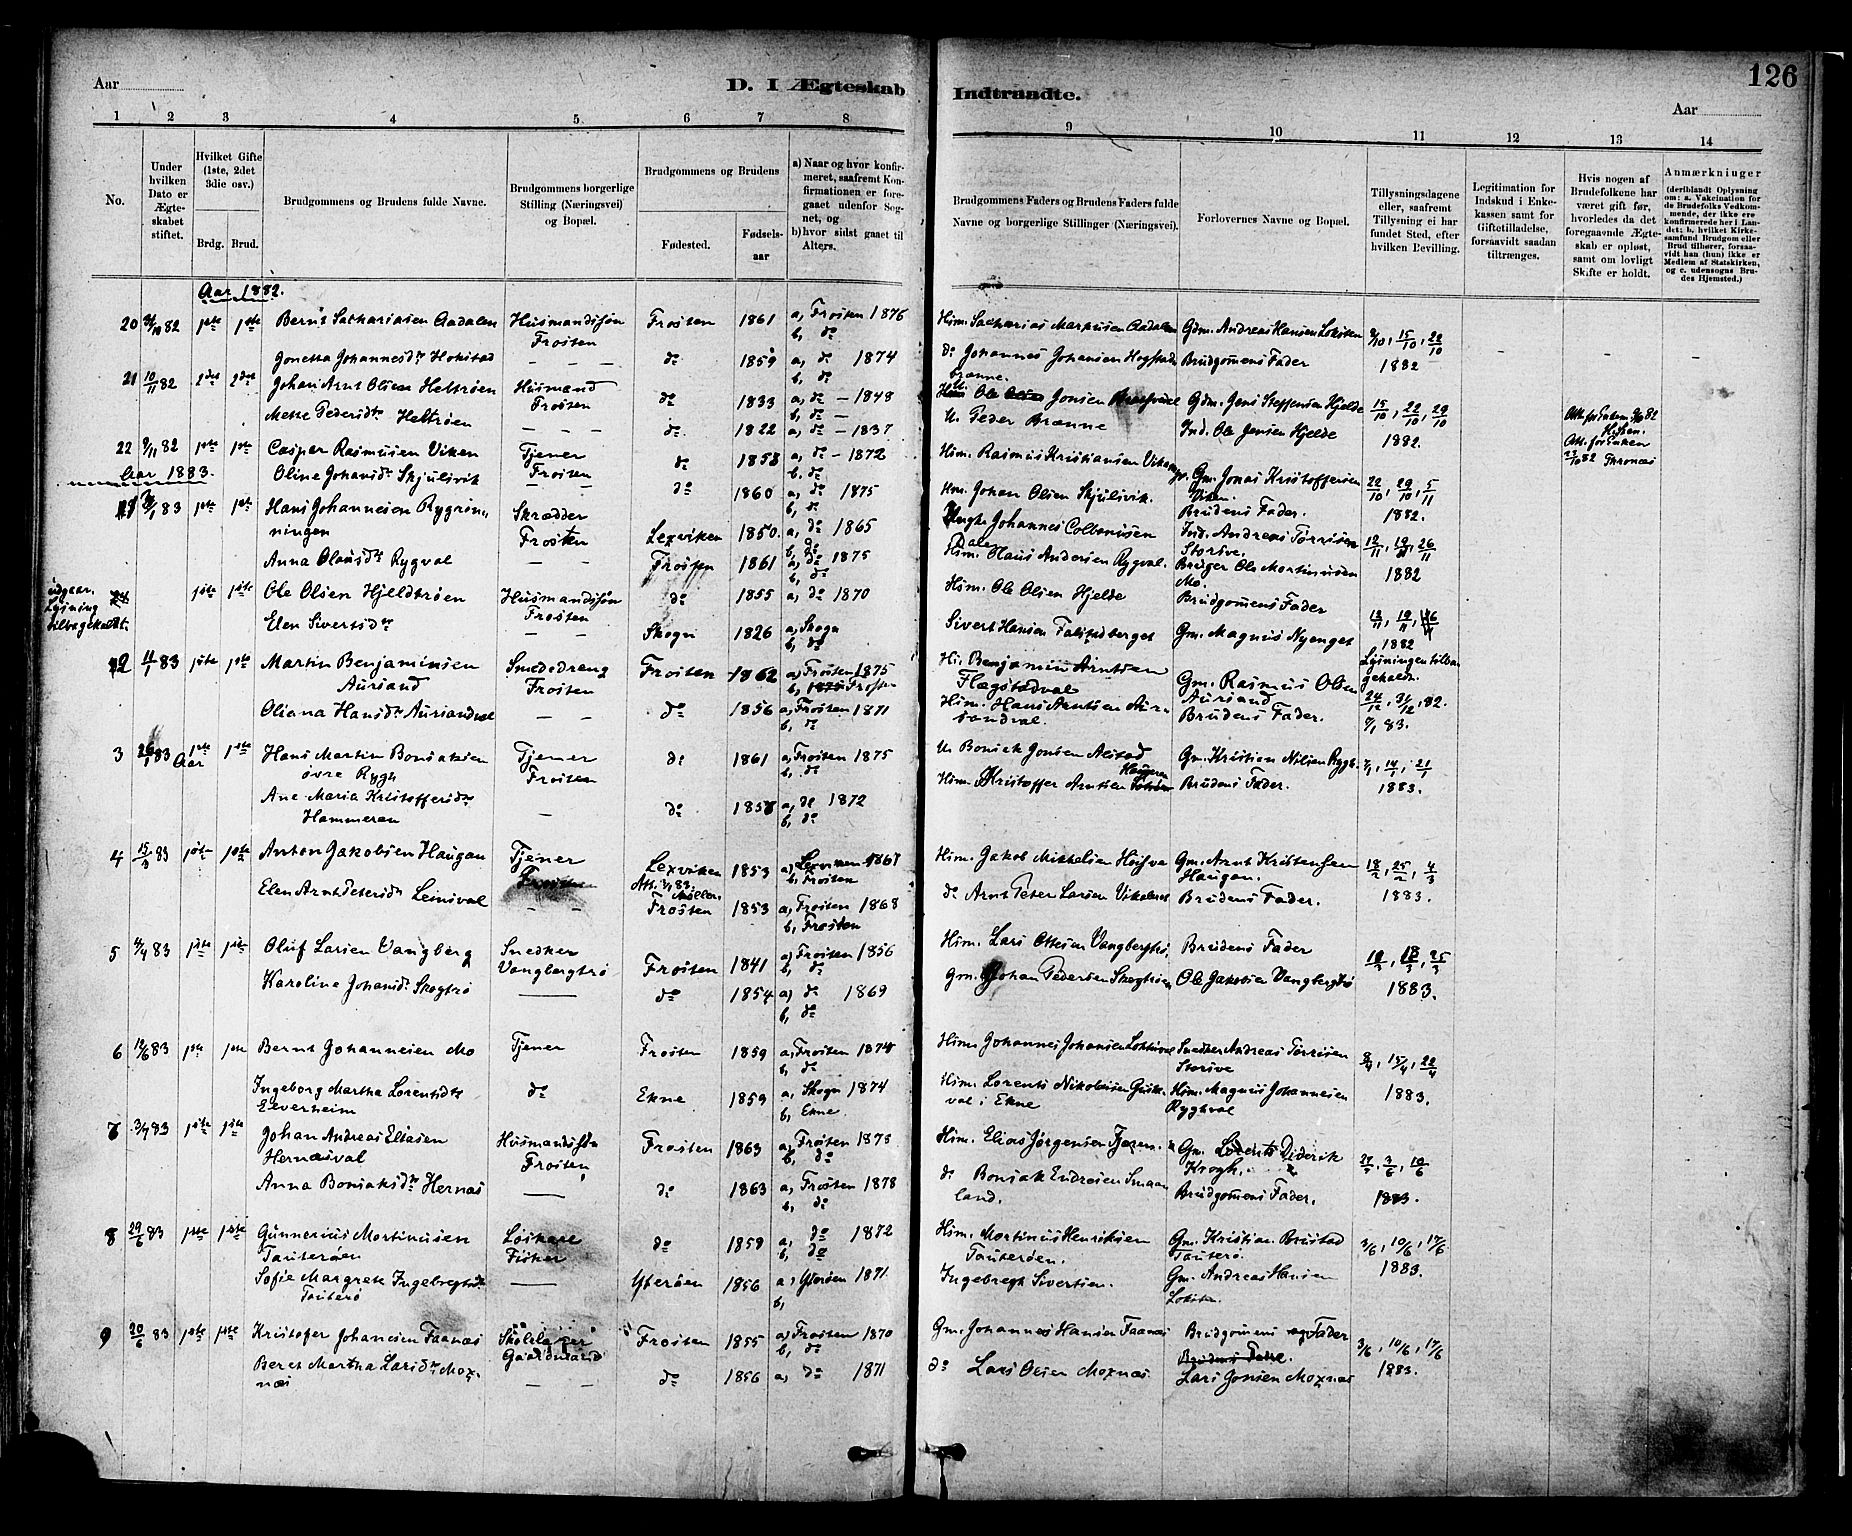 126
Aar
D. I Ægteskab Indtraadte.
Aar
1 2 3 4 5 6 7 8 9 10 11 12 13 14
No.
Under hvilken Dato er Ægteskabet stiftet.
Hvilket Gifte (1ste, 2det 3die osv.)
Brdg. Brud.
Brudgommens og Brudens fulde Navne.
Brudgommens borgerlige Stilling (Næringsvei) og Bopæl.
Brudgommens og Brudens
Fødested.
Fødselsaar
a) Naar og hvor konfirmeret, saafremt Konfirmationen er foregaaet udenfor Sognet, og
b) hvor sidst gaaet til Alters.
Brudgommens Faders og Brudens Faders fulde Navne og borgerlige Stillinger (Næringsvei).
Forlovernes Navne og Bopæl.
Tillysningsdagene eller, saafremt Tillysning ei har fundet Sted, efter hvilken Bevilling.
Legitimation for Indskud i Enkekassen samt for Giftetilladelse, forsaavidt saadan tiltrænges.
Hvis nogen af Brudefolkene har været gift før, hvorledes da det foregaaende Ægteskab er opløst, samt om lovligt Skifte er holdt.
Anmærkninger (deriblandt Oplysning om: a. Vakcination for de Brudefolks Vedkommende, der ikke ere konfirmerede her i Landet; b. hvilket Kirkesamfund Brudgom eller Brud tilhører, forsaavidt han (hun) ikke er Medlem af Statskirken, og c. udensogns Brudes Hjemsted.)
Aar 1882.
20 82 1ste 1ste Bernt Sakariasen Aadalen Husmandssøn Frosten Frosten 1861 a, Frosten 1876 b, do Husm. Sakarias Markusen Aadalen Gdm. Andreas Hansen Loksten 8/10, 15/10, 22/10 1882
Jonetta Johannesdtr Hokstad — — do 1859 a, do 1874 b, do do Johannes Johansen Hogstad Brudgomens Fader
21 10/11 82 2det 2det Johan Arnt Olsen Heltrøen Husmand Frosten do 1833 a, do — 1848 b, do — Ole Jonsen Gdm. Jens Steffensen Hjelde 15/10, 22/10, 29/10 1882.
Mette Pedersdtr Heltrøen — — — do 1822 a, do — 1837 U. Peder Brænne Ind. Ole Jensen Hjelde
22 9/11 82 1ste 1ste Casper Rasmusen Viken Tjener Frosten do 1858 a, do — 1872 b, do Husm. Rasmus Kristiansen Viken Gm. Jonas Kristoffersen Viken. 22/10, 29/10, 5/11 1882.
Oline Johansdtr Skjulsvik — — do 1860 a, do 1875 b, do Hm. Johan Olsen Skjulsvik. Brudens Fader.
Aar 1883.
1 83 1ste 1ste Hans Johannesen Rygrønningen Skrædder Frosten Lexviken 1850. a, do 1865 b, do Johannes Colbenusen Dalen Ind. Andreas Tørrisen Storsve. 12/11, 19/11, 26/11 1882
Anna Olausdtr Rygval — — Frosten 1861 a, do 1875 b, do Husm. Olaus Andersen Rygval. Bruger Ole Mortinusen Mo.
udgaar. Lysning tilbagekaldt. 1ste 1ste Ole Olsen Hjeldtrøen Husmandssøn Frosten do 1855 a, do 1870 Husm. Ole Olsen Hjelde Brudgomens Fader 1882
Elen Sivertsdtr — — Skogn 1826 a, Skogn b, do Sivert Hansen Falstadberget Gm. Magnus Nyenget Lysningen tilbagekaldt.
2 4/1 83 1ste 1ste Martin Benjaminsen Aursand Smededreng Frosten Frosten 1862 a, Frosten 1875 b, Frosten Hm. Benjamin Arntsen Flægstadval Gm. Rasmus Olsen Aursand 24/12, 31/12, 82.
Oliana Hansdtr Aursandval — — do 1856 a, Frosten 1871 b, do Husm. Hans Arntsen Aursandval. Brudens Fader. 7/1 83.
3 26/1 83 1ste 1ste Hans Martin Bonsaksen øvre Rygh Tjener Frosten do 1861 a, Frosten 1875 b, do U. Bonsak Jonsen Alstad Gm. Kristian Nilsen Rygh. 7/1, 14/1, 21/1 1883.
Ane Maria Kristoffersdtr Hammeran — do 1858 a, do 1872 b, do Husm. Kristoffer Arntsen Brudens Fader.
4 15/3 83 1ste 1ste Anton Jakobsen Haugan Tjener Frosten Lexviken 1853 a, Lexviken 1867 b, Frosten Husm. Jakob Mikkelsen Gm. Arnt Kristensen Haugan. 18/2, 25/2, 4/3 1883.
Elen Arnt Petersdtr Leinsval — — Frosten 1853 a, Frosten 1868 b, Frosten do Arnt Peter Larsen Brudens Fader.
5 4/4 83 1ste 1ste Oluf Larsen Vangberg Snedker Vangbergtrø Frosten 1841 a, Frosten 1856 b, do Husm. Lars Ottesen Vangbergtrø, Brudens Fader 18/3, 25/3 1883.
Karoline Johansdtr Skogtrø — do 1854 a, do 1869 b, do Gm. Johan Pedersen Skogtrøen Ole Jakobsen Vangbergtrø
6 83 1ste 1ste Bernt Johannesen Mo Tjener Frosten 1859 a, Frosten 1874 b, do Husm. Johannes Johansen Snedker Andreas Tørrisen Storsve 8/4, 15/4, 22/4 1883.
Ingeborg Martha Lorentsdtr Eeverheim do Ekne 1859 a, Skogn 1874 b, Ekne. Husm. Lorents Nikolaisen val i Ekne Husm. Magnus Johannesen Ryghval
7 3/7 83 1ste 1ste Johan Andreas Eliasen Hernæsval Husmandssøn Frosten Frosten 1863 a, Frosten 1878 b, do Husm. Elias Jørgensen Gm. Lorents Diderik Krogh. 3/6, 10/6 1883.
Anna Bonsaksdtr Hernæs — do 1863 a, Frosten 1878 b, do do Bonsak Endresen Smaaland. Brudgomens Fader.
8 29/6 83 1ste 1ste Gunnerius Mortinusen Tauterøen Løskarl Fisker do 1859 a, do 1872 b, do Husm. Mortinus Henriksen Tauterøen. Gm. Kristian Brustad Tauterø. 3/6, 10/6, 17/6 1883.
Sofie Margrete Ingebregtsdtr Tauterø — Ytterøen 1856 a, Ytterøen 1871 b, Ingebregt Sivertsen. Gm. Andreas Hansen Loksten.
9 20/6 83 1ste 1ste Kristofer Johansen Faanæs Skolelærer Gaardmand Frosten 1855 a, Frosten 1870 b, do Gm. Johannes Hansen Faanæs Brudgomens Fader 3/6, 10/6, 17/6 1883.
Beret Martha Larsdtr Moxnæs — — do 1856 a, do 1871 do Lars Olsen Moxnæs Lars Jonsen Moxnæs